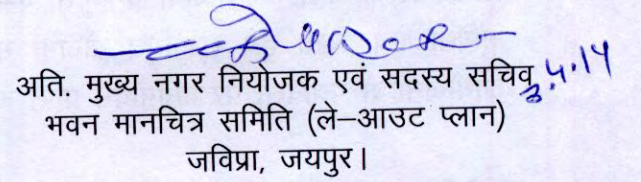 अति. मुख्य नगर नियोजक एवं सदस्य सचिव
3.4.14
भवन मानचित्र समिति (ले–आउट प्लान)
जविप्रा, जयपुर।